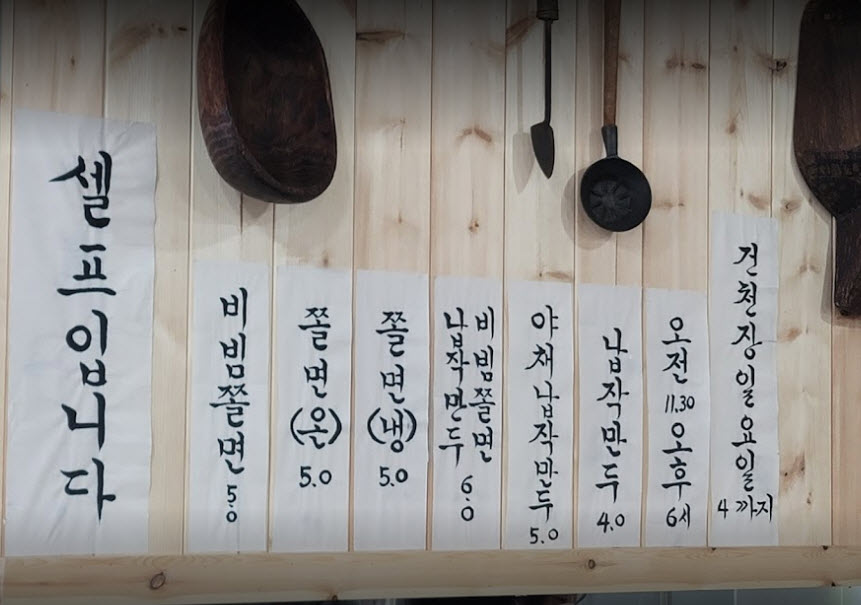 셀프입니다
비빔쫄면 5.0
쫄면(온) 5.0
쫄면(냉) 5.0
비빔쫄면
납작만두 6.0
야채납작만두 5.0
납작만두 4.0
오전 11.30 오후 6시
건천장일요일 4까지